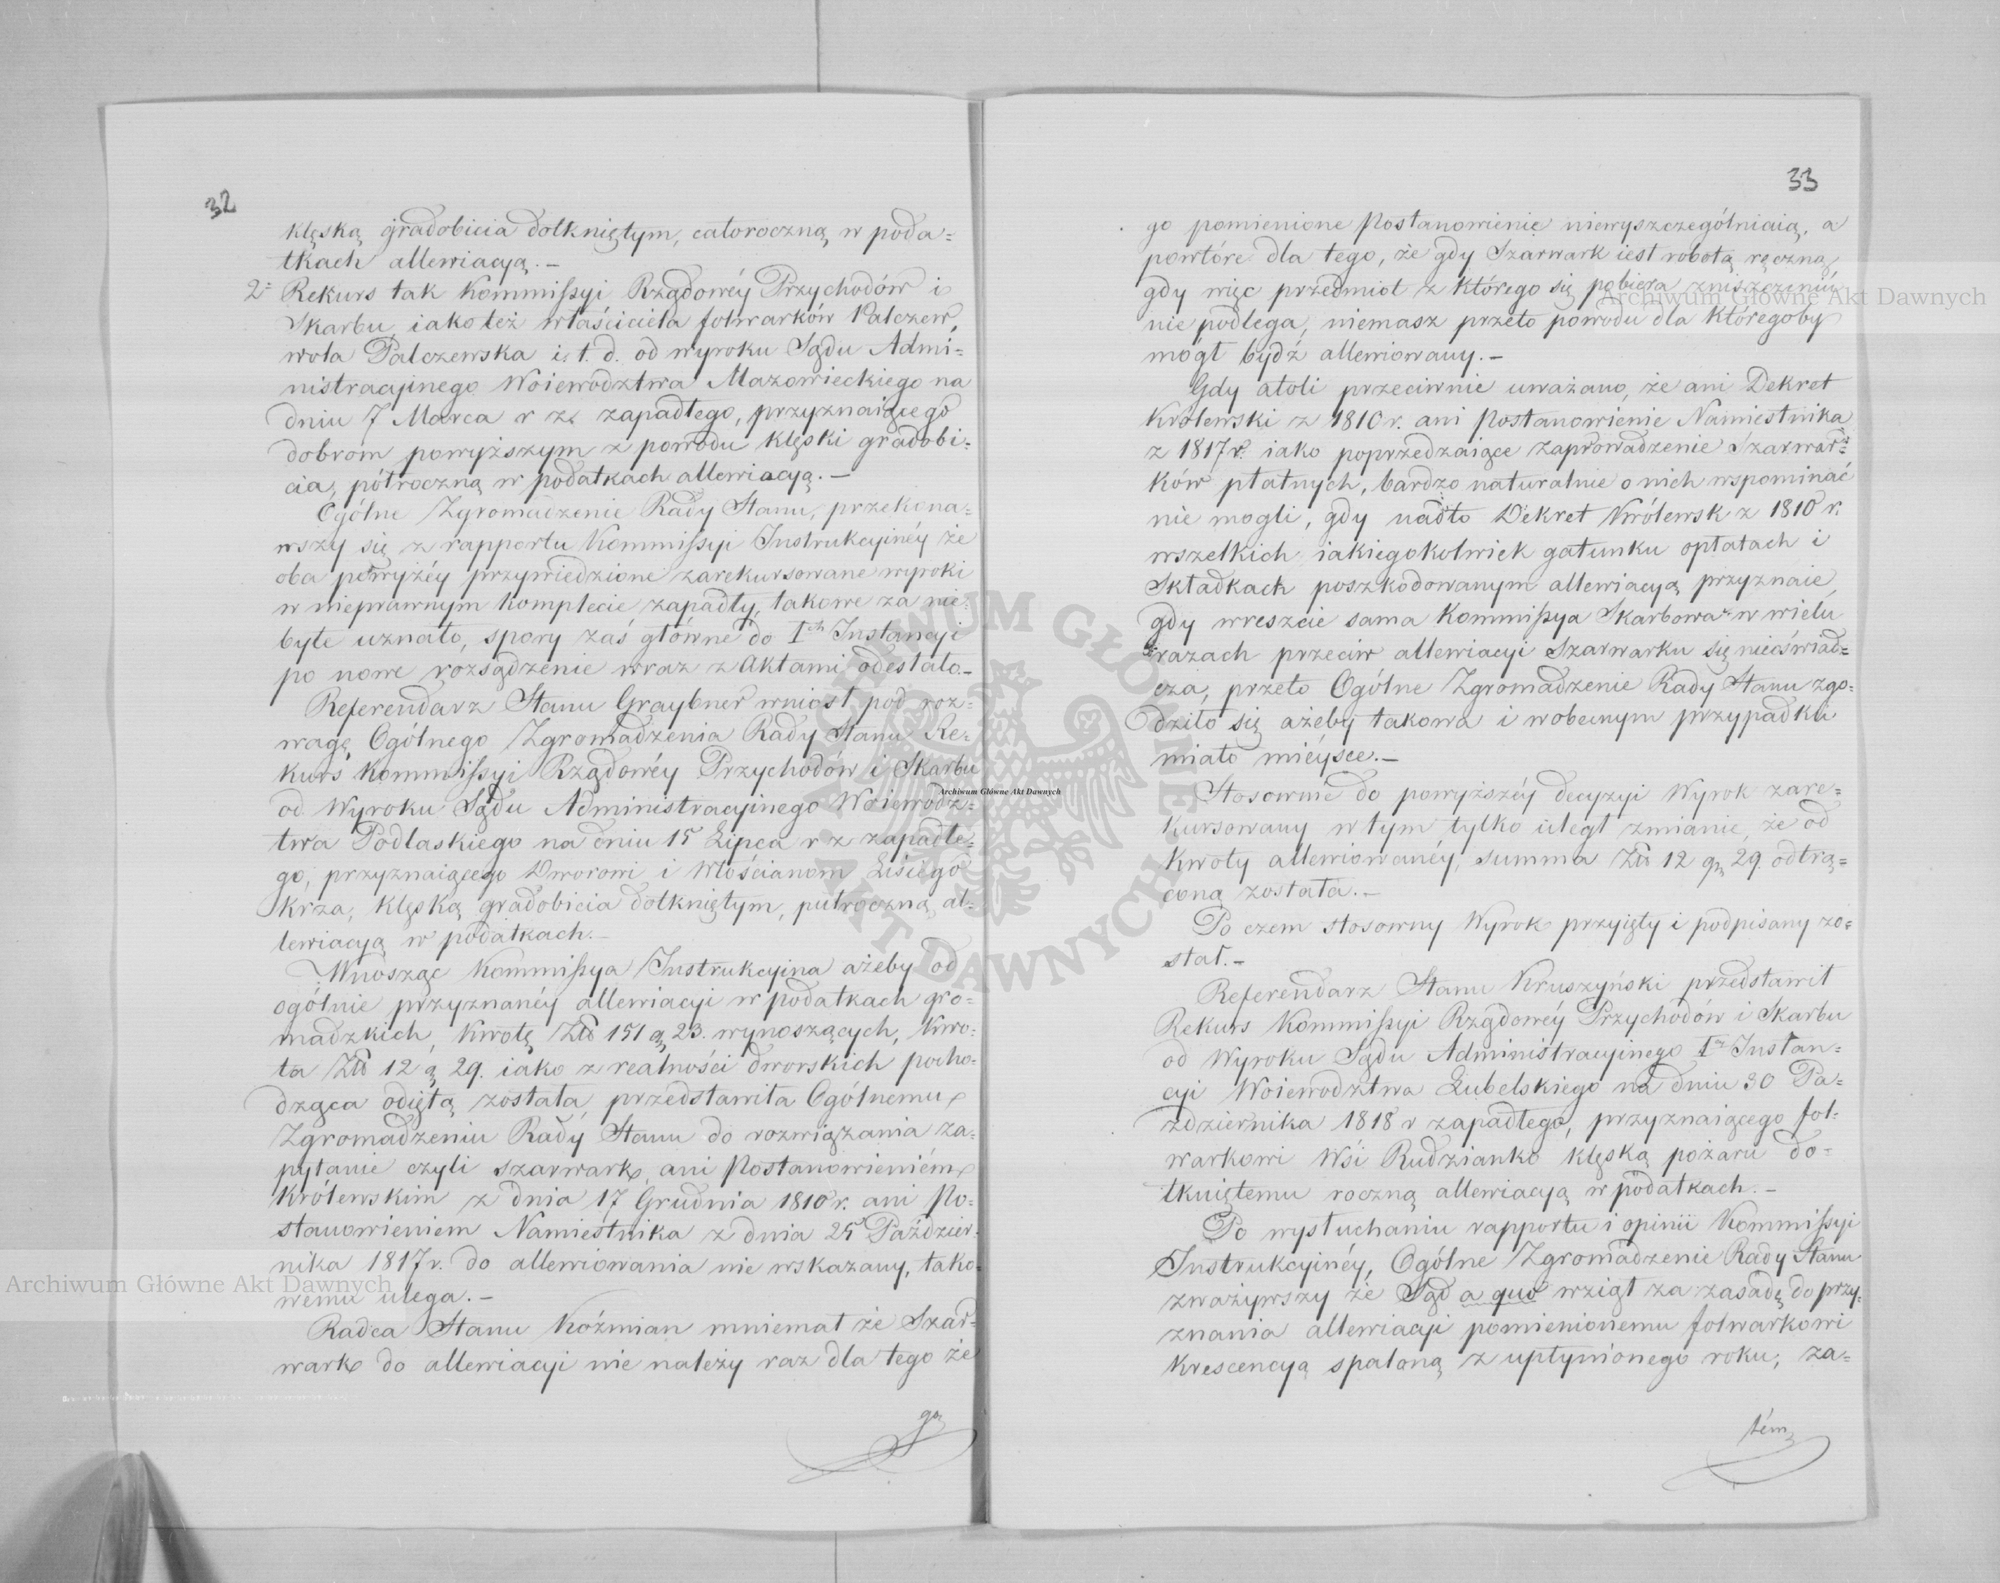 32
klęską gradobicia dotkniętym, całoroczną w poda=
tkach allewiacyą.—
2° Rekurs tak Kommissyi Rządowéy Przychodów i
Skarbu, iako też właściciela folwarków Palczew,
wola Palczewska i. t. d. od wyroku Sądu Admi=
nistracyinego Woiewództwa Mazowieckiego na
dniu 7 Marca r z. zapadłego, przyznaiącego
dobrom powyższym z powodu klęski gradobi=
cia, półroczną w podatkach allewiacyą.—
Ogólne Zgromadzenie Rady Stanu, przekona=
wszy się z rapportu Kommissyi Instrukcyinéy że
oba powyżéy przywiedzione zarekursowane wyroki
w nieprawnym komplecie zapadły, takowe za nie=
byłe uznało, spory zaś główne do Iéj Instancyi
po nowe rozsądzenie wraz z Aktami odesłało.—
Referendarz Stanu Graybner wniósł pod roz=
wagę Ogólnego Zgromadzenia Rady Stanu Re=
kurs Kommissyi Rządowéy Przychodów i Skarbu
od Wyroku Sądu Administracyinego Woiewódz=
twa Podlaskiego na dniu 15 Lipca r z zapadłe=
go, przyznaiącego Dworowi i Włościanom Lisiego
Krza, klęską gradobicia dotkniętym, pułroczną al=
lewiacyą w podatkach.—
Wnosząc Kommissya Instrukcyina ażeby od
ogólnie przyznanéy allewiacyi w podatkach gro=
madzkich, kwotę Złł 151 g 23. wynoszących, kwo=
ta Złł 12 g 29. iako z realności dworskich pocho=
dząca odiętą została, przedstawiła Ogólnemu
Zgromadzeniu Rady Stanu do rozwiązania za=
pytanie czyli szarwark, ani Postanowieniem
Królewskim z dnia 17 Grudnia 1810 r. ani Po=
stanowieniem Namiestnika z dnia 25 Paździer=
nika 1817 r. do allewiowania nie wskazany, tako=
wemu ulega.—
Radca Stanu Koźmian mniemał że Szar=
wark do allewiacyi nie należy raz dla tego że
go
33
go pomienione Postanowienie niewyszczególniaią, a
powtóre dla tego, że gdy Szarwark iest robotą ręczną,
gdy więc przedmiot z którego się pobiera zniszczeniu
nie podlega, niemasz przeto powodu dla któregoby
mógł bydź allewiowany.—
Gdy atoli przeciwnie uważano, że ani Dekret
Królewski z 1810 r. ani Postanowienie Namiestnika
z 1817 r. iako poprzedzaiące zaprowadzenie Szarwar=
ków płatnych, bardzo naturalnie o nich wspominać
nie mogli, gdy nadto Dekret Królewsk z 1810 r.
wszelkich iakiegokolwiek gatunku opłatach i
składkach poszkodowanym allewiacyą przyznaie,
gdy wreszcie sama Kommissya Skarbowa w wielu
razach przeciw allewiacyi Szarwarku się nieoświad=
cza, przeto Ogólne Zgromadzenie Rady Stanu zgo=
dziło się ażeby takowa i w obecnym przypadku
miało mieysce.—
Stosownie do powyższéy decyzyi Wyrok zare=
kursowany w tym tylko uległ zmianie, że od
kwoty allewiowanéy, summa Złł 12 g 29. odtrą=
coną została.—
Po czem stosowny Wyrok przyięty i podpisany zo=
stał.—
Referendarz Stanu Kruszyński przedstawił
Rekurs Kommissyi Rządowéy Przychodów i Skarbu
od Wyroku Sądu Administracyinego Iéj Instan=
cyi Woiewództwa Lubelskiego na dniu 30 Pa=
zdziernika 1818 r zapadłego, przyznaiącego fol=
warkowi Wsi Rudzianko klęską pożaru do=
tkniętemu roczną allewiacyą w podatkach.—
Po wysłuchaniu rapportu i opinii Kommissyi
Instrukcyinéy, Ogólne Zgromadzenie Rady Stanu
zważywszy że Sąd a quo wziął za zasadę do przy=
znania allewiacyi pomienionemu folwarkowi
krescencyą spaloną z upłynionego roku, za=
tém
Archiwum Główne Akt Dawnych
Archiwum Główne Akt Dawnych
Archiwum Główne Akt Dawnych
ARCHIWUM GŁÓWNE AKT DAWNYCH